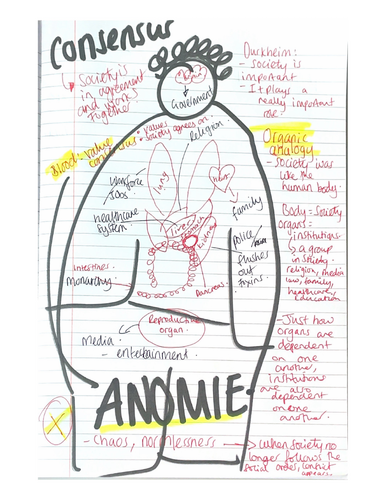 Consensus
↳ Society is
in agreement
and works
together
Durkheim:
- society is
important
- It plays a
really important
role.
Government
Blood: value
consensus
: values
society agrees on
Religion
Organic
analogy
- Society was
like the
human body.
Body = Society
organs =
institutions
↳ a group
in society
religion, media
law, family,
healthcare,
education
- Just how
organs are
dependent
on one
another,
institutions
are also
dependent
on one
another.
workforce
JOBS
lung
heart
family
healthcare
system
liver
stomach
kidney
Police/
flushes
out
toxins.
intestines
monarchy
Pancreas
Reproductive
organ
Media
- entertainment
ANOMIE
X
- Chaos, normlessness → When society no
longer follows the
social order, conflict
appears